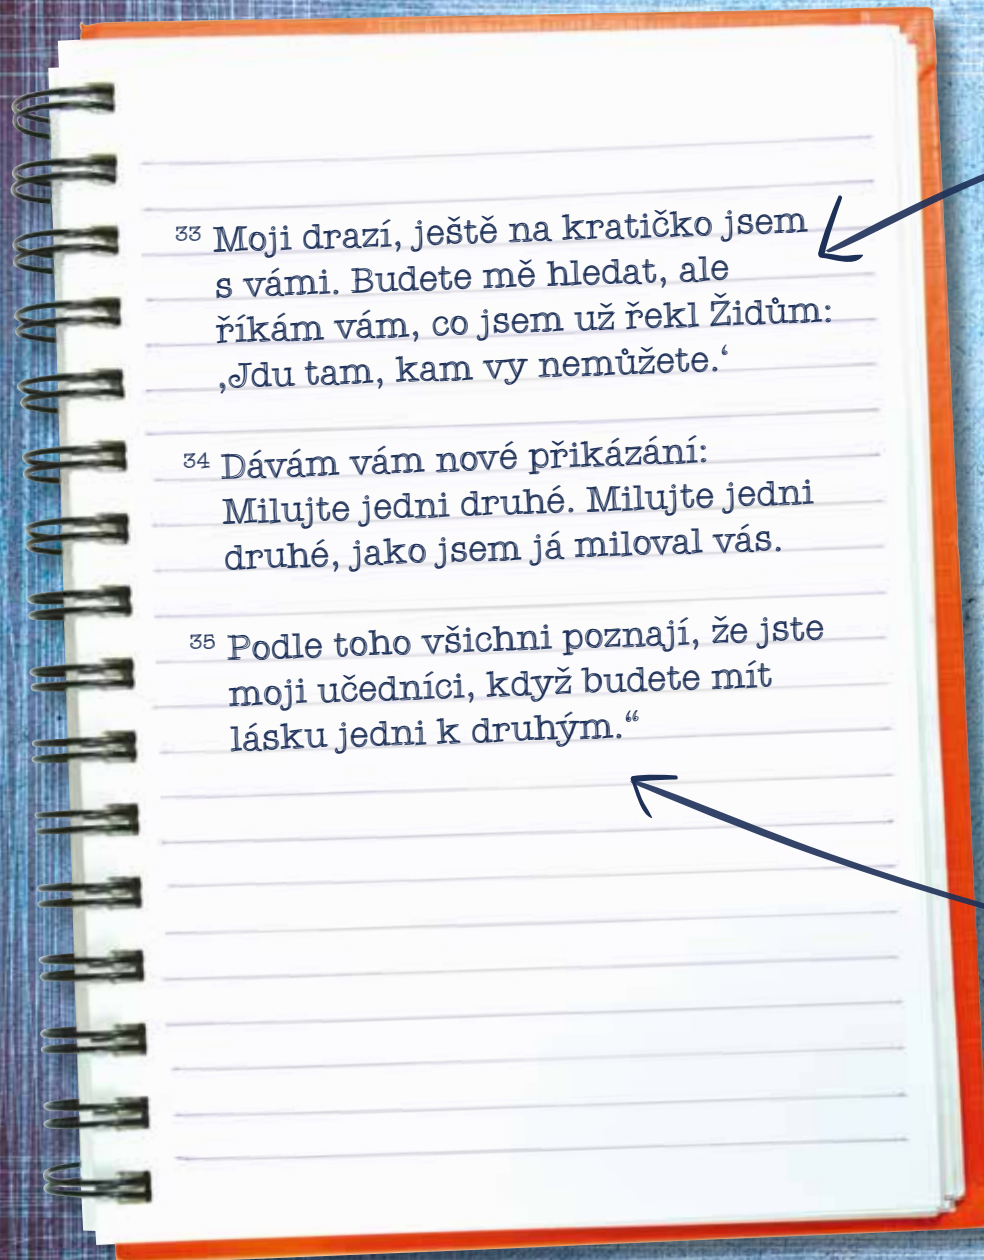 33 Moji drazí, ještě na kratičko jsem
s vámi. Budete mě hledat, ale
říkám vám, co jsem už řekl Židům:
‚Jdu tam, kam vy nemůžete.‘
34 Dávám vám nové přikázání:
Milujte jedni druhé. Milujte jedni
druhé, jako jsem já miloval vás.
35 Podle toho všichni poznají, že jste
moji učedníci, když budete mít
lásku jedni k druhým.“